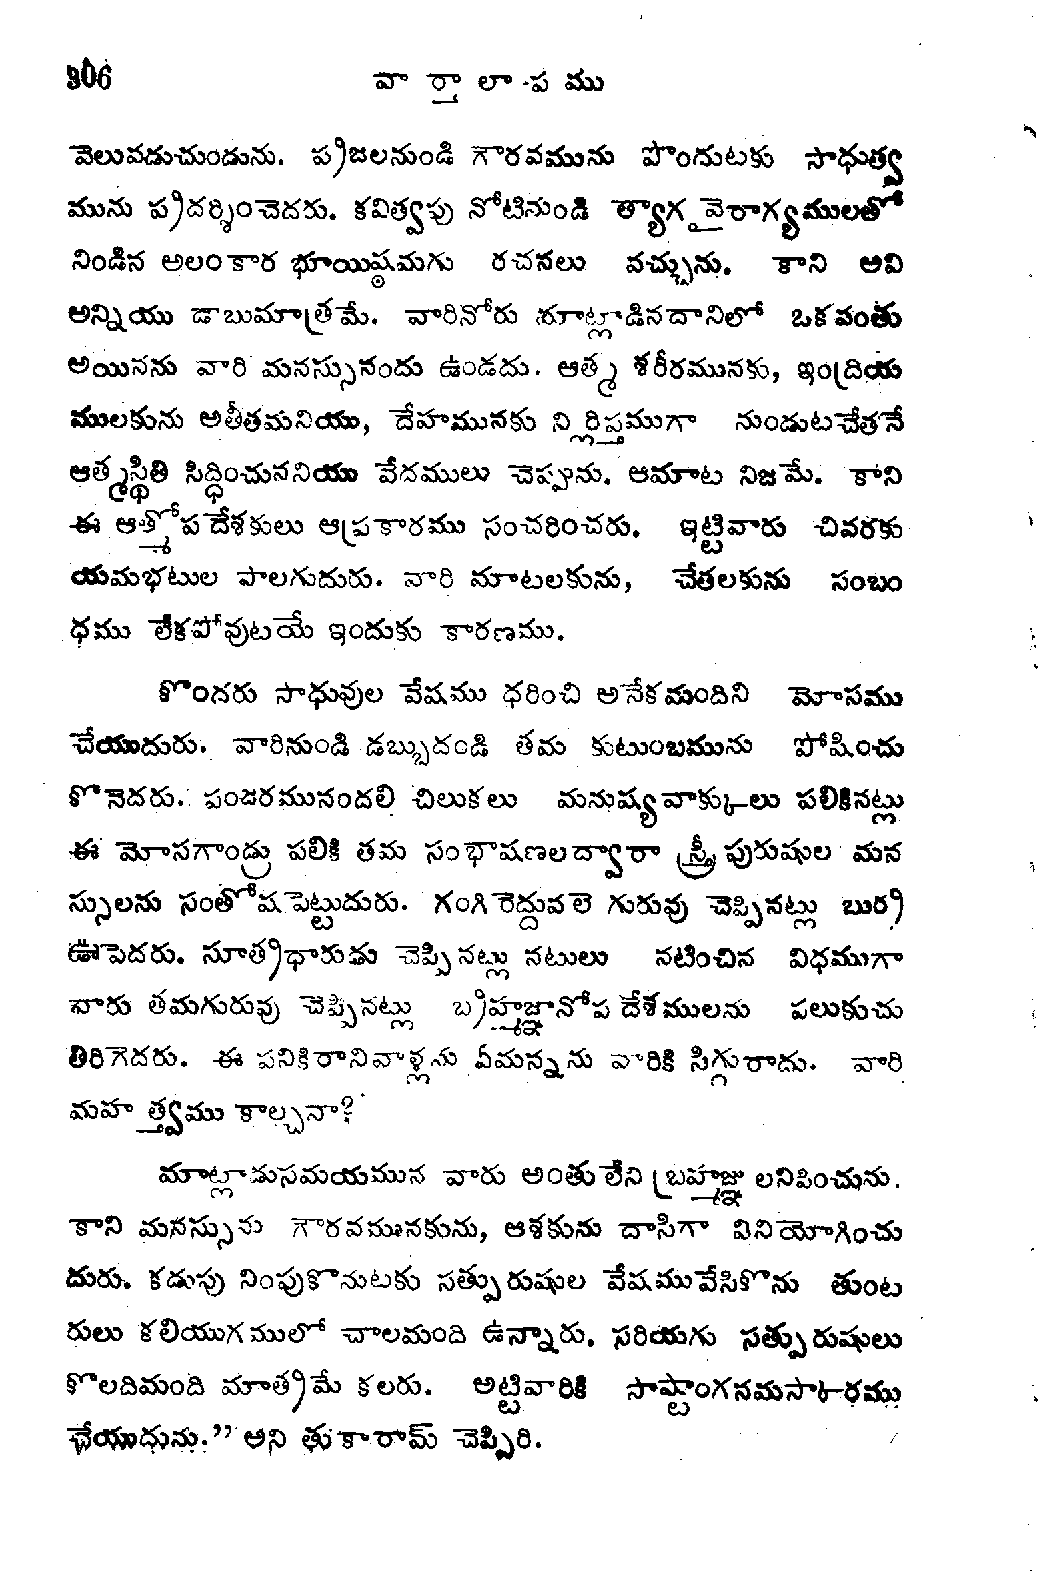 306 వార్తాలాపము
వెలువడుచుండును. ప్రజలనుండి గౌరవమును పొందుటకు సాధుత్వ
మును ప్రదర్శించెదరు. కవిత్వపు నోటినుండి త్యాగ వైరాగ్యములతో
నిండిన అలంకార భూయిష్ఠమగు రచనలు వచ్చును. కాని అవి
అన్నియు డాబుమాత్రమే. వారినోరు మాట్లాడినదానిలో ఒకవంతు
అయినను వారి మనస్సునందు ఉండదు. ఆత్మ శరీరమునకు, ఇంద్రియ
ములకును అతీతమనియు, దేహమునకు నిర్లిప్తముగా నుండుటచేతనే
ఆత్మస్థితి సిద్ధించుననియు వేదములు చెప్పును. ఆమాట నిజమే. కాని
ఈ ఆత్మోపదేశకులు ఆప్రకారము సంచరించరు. ఇట్టివారు చివరకు
యమభటుల పాలగుదురు. వారి మాటలకును, చేతలకును సంబం
ధము లేకపోవుటయే ఇందుకు కారణము.
కొందరు సాధువుల వేషము ధరించి అనేకమందిని మోసము
చేయుదురు. వారినుండి డబ్బుదండి తమ కుటుంబమును పోషించు
కొనెదరు. పంజరమునందలి చిలుకలు మనుష్యవాక్కులు పలికినట్లు
ఈ మోసగాండ్రు పలికి తమ సంభాషణలద్వారా స్త్రీపురుషుల మన
స్సులను సంతోషపెట్టుదురు. గంగిరెద్దువలె గురువు చెప్పినట్లు బుర్ర
ఊపెదరు. సూత్రధారుడు చెప్పినట్లు నటులు నటించిన విధముగా
వారు తమగురువు చెప్పినట్లు బ్రహ్మజ్ఞానోపదేశములను పలుకుచు
తిరిగెదరు. ఈ పనికిరానివాళ్లను ఏమన్నను వారికి సిగ్గురాదు. వారి
మహత్త్వము కాల్చనా?
మాట్లాడుసమయమున వారు అంతులేని బ్రహ్మజ్ఞులనిపించును.
కాని మనస్సును గౌరవమునకును, ఆశకును దాసిగా వినియోగించు
దురు. కడుపు నింపుకొనుటకు సత్పురుషుల వేషమువేసికొను తుంట
రులు కలియుగములో చాలమంది ఉన్నారు. సరియగు సత్పురుషులు
కొలదిమంది మాత్రమే కలరు. అట్టివారికి సాష్టాంగనమస్కారము
చేయుదును.” అని తుకారామ్ చెప్పిరి.